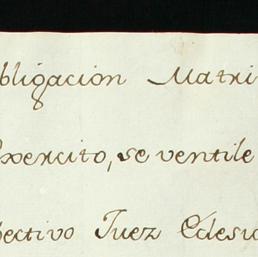 bligación Matri
Exercito, se ventile
pectivo Juez Eclesia